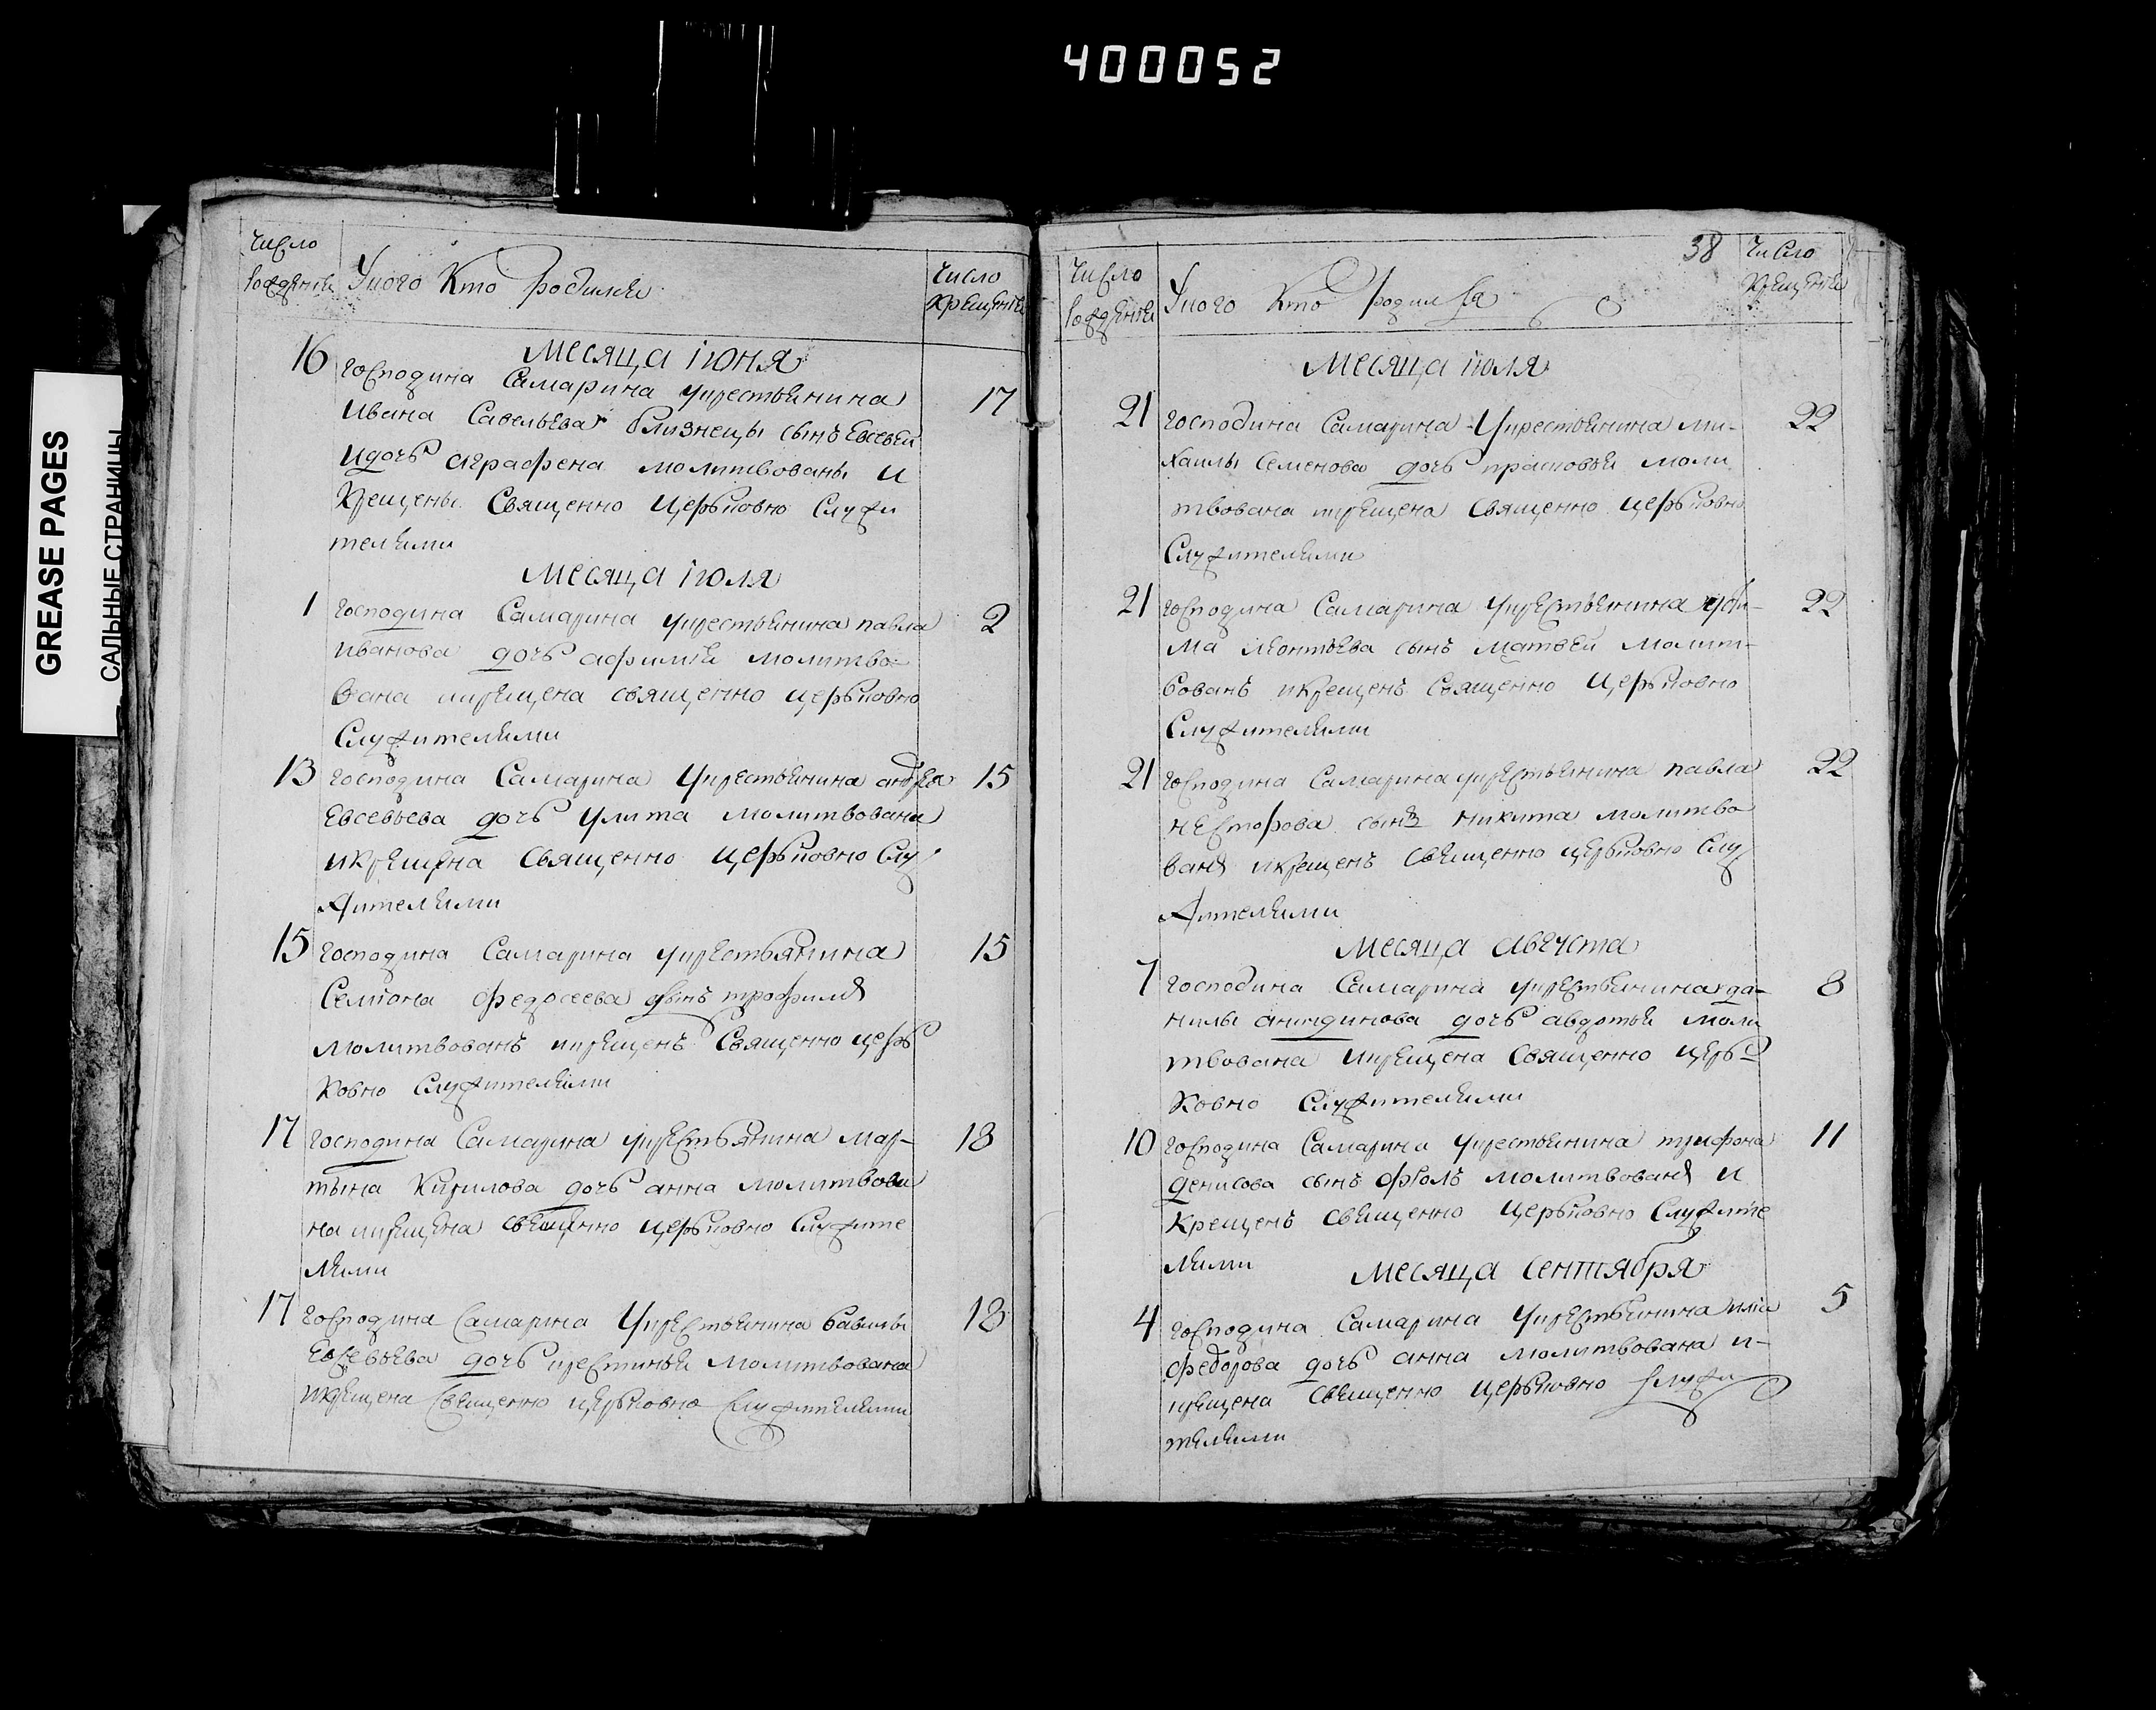 400052
GREASE PAGES
САЛЬНЫЕ СТРАНИЦЫ
Число
рождения
Укого Кто родился
Число
крещения
Месяца июня
16 господина Самарина укрестьянина 17
Ивана Савельева близнецы сынъ Евсевей
идочь аграфена молитвованы и
Крещены Священно церьковно Служи
телями
Месяца июля
1 господина Самарина укрестьянина павла 2
иванова дочь афимия молитво-
вана икрещена священно церьковно
Служителями
13 господина Самарина Укрестьянина андрея 15
Евсевьева дочь улита молитвована
икрещена Священно церьковно Слу
жителями
15 господина Самарина укрестьянина 15
Семиона федосеева сынъ трофимъ
молитвованъ икрещенъ Священно церь
Ковно Служителями
17 господина Самарина укрестьянина мар- 18
тына Кирилова дочь анна молитвова
на икрещена священно церьковно Служите
лями
17 господина Самарина Укрестьянина вавилы 18
Евсевьева дочь крестинья молитвована
икрещена Священно церьковно Служителями
38
Число
рождения
Укого Кто родился
Число
Крещения
Месяца июля
21 господина Самарина Укрестьянина ми- 22
хаилы Семенова дочь прасковья моли
твована икрещена Священно церьковно
Служителями
21 господина Самарина укрестьянина 22
ма леонтьева сынъ матвей молит-
вованъ икрещенъ Священно Церьковно
Служителями
21 господина Самарина укрестьянина павла 22
несторова сынъ никита молитво
ванъ икрещенъ священно церьковно Слу
жителями
Месяца августа
7 господина Самарина укрестьянина да- 8
нилы анкидинова дочь авдотья моли
твована икрещена Священно церь-
Ковно Служителями
10 господина Самарина укрестьянина трифона 11
денисова сынъ фролъ молитвованъ и
крещенъ священно церьковно Служите
лями
Месяца сентября
4 господина Самарина укрестьянина илии 5
федорова дочь анна молитвована и-
крещена священно церьковно Служи
телями